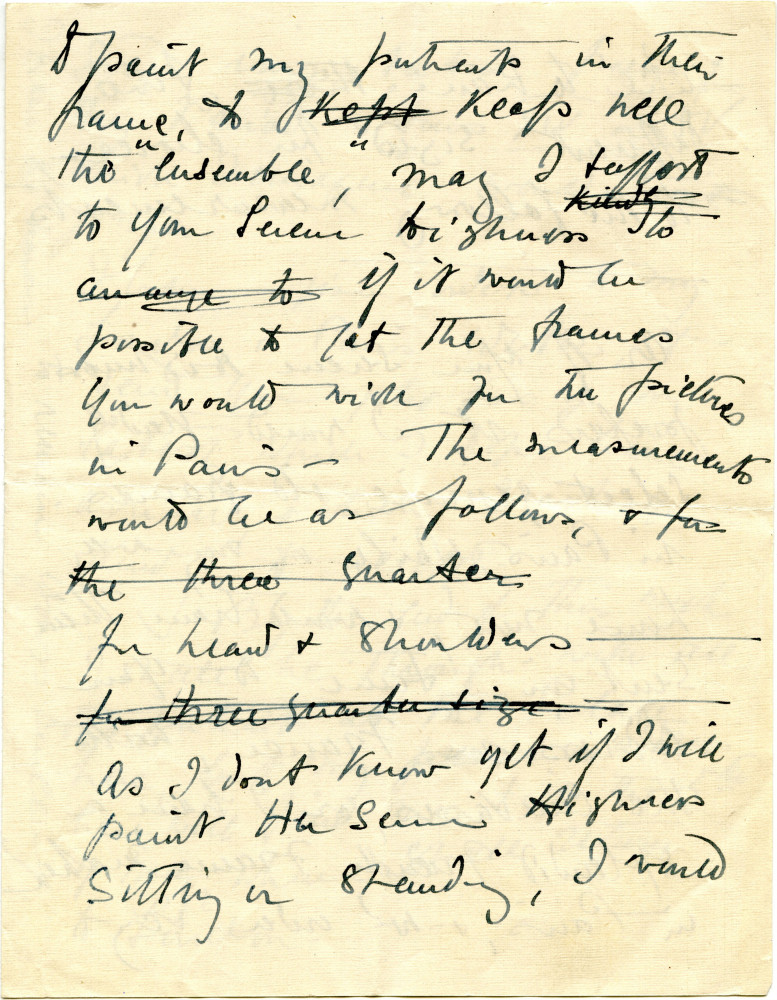 I paint my portraits in their
frame, to kept keep well
the "ensemble", may I
to your Serene Highness kindly to
arrange to if it would be
possible to get the frames
you would wish for the pictures
in Paris – The measurements
would be as follows, & for
the three quarters
for head & shoulders —
for three quarter size —
As I dont know yet if I will
paint Her Serene Highness
Sitting or Standing, I would